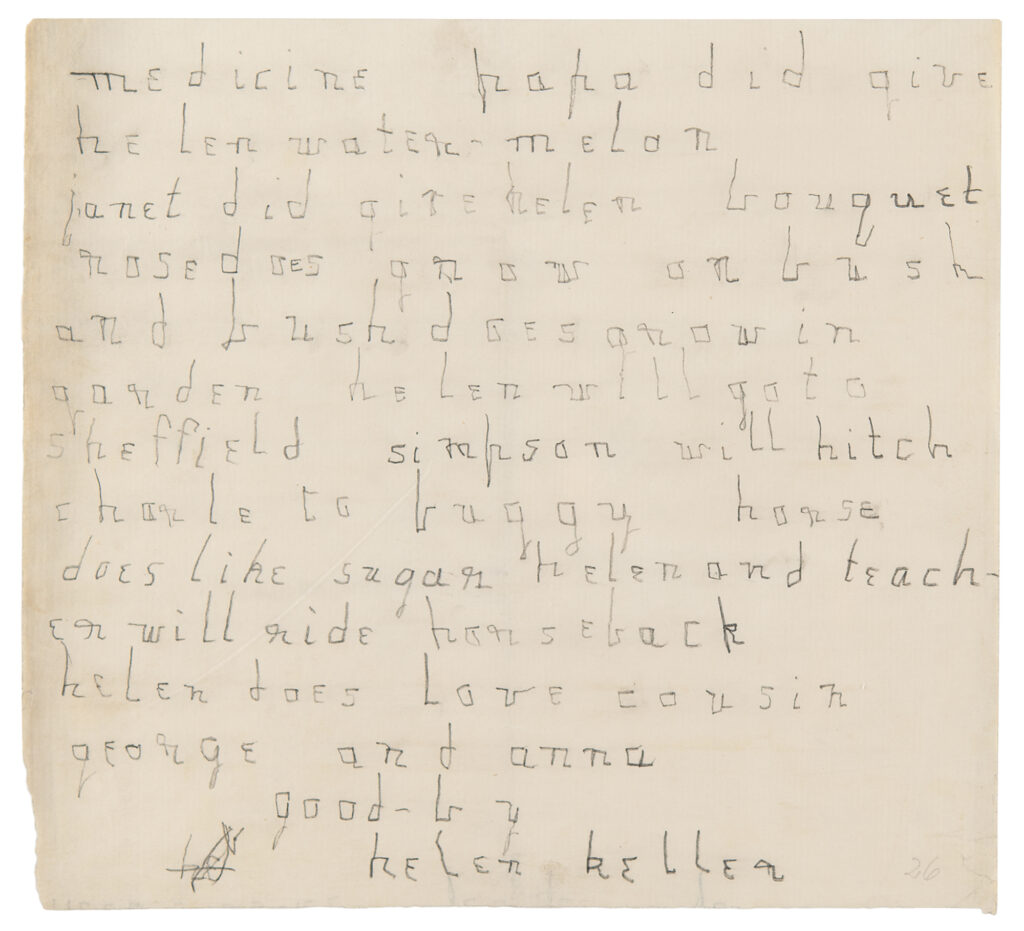 medicine papa did give
helen water-melon
janet did give helen bouquet
rose does grow on bush
and bush does grow in
garden helen will go to
sheffield simpson will hitch
charle to buggy horse
does like sugar helen and teach-
er will ride horseback
helen does love cousin
george and anna
good-by
helen keller
26